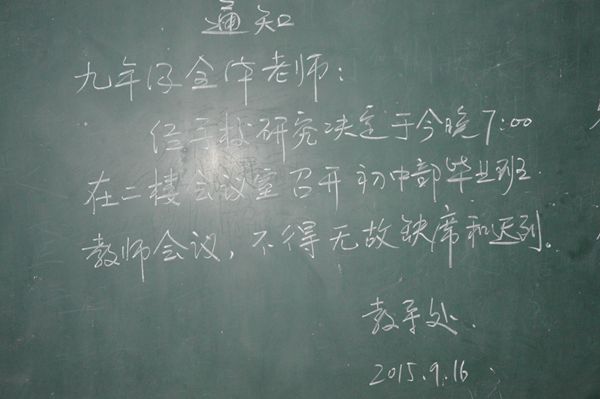 通知
九年级全体老师：
经学校研究决定于今晚7:00
在二楼会议室召开初中部毕业班
教师会议，不得无故缺席和迟到。
教导处.
2015.9.16